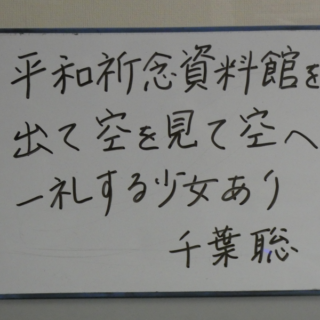 平和祈念資料館を
出て空を見て空へ
一礼する少女あり
千葉聡